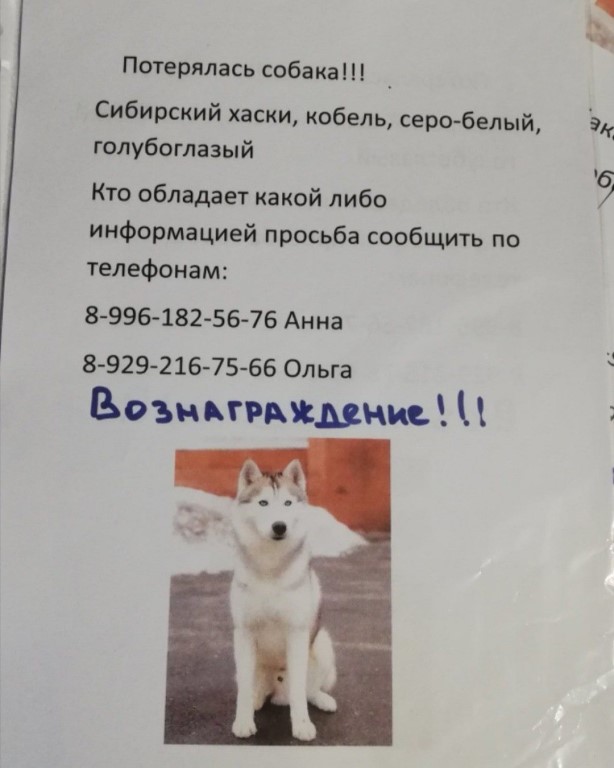 Потерялась собака!!!
Сибирский хаски, кобель, серо-белый,
голубоглазый
Кто обладает какой либо
информацией просьба сообщить по
телефонам:
8-996-182-56-76 Анна
8-929-216-75-66 Ольга
Вознаграждение!!!